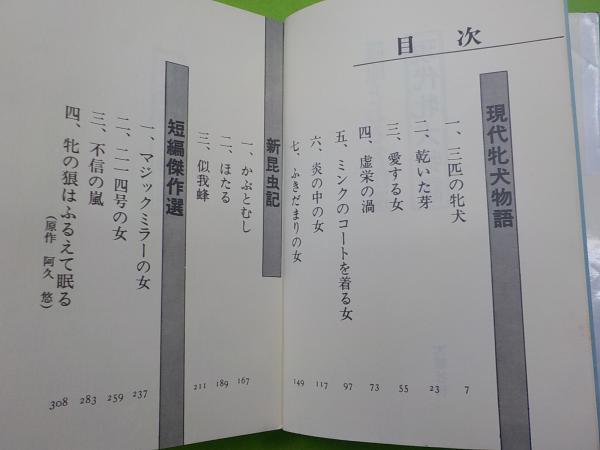 目次
現代牝犬物語
一、三匹の牝犬 7
二、乾いた芽 23
三、愛する女 55
四、虚栄の渦 73
五、ミンクのコートを着る女 97
六、炎の中の女 117
七、ふきだまりの女 149
新昆虫記
一、かぶとむし 167
二、ほたる 189
三、似我蜂 211
短編傑作選
一、マジックミラーの女 237
二、二一四号の女 259
三、不信の嵐 283
四、牝の狼はふるえて眠る 308
(原作 阿久 悠)